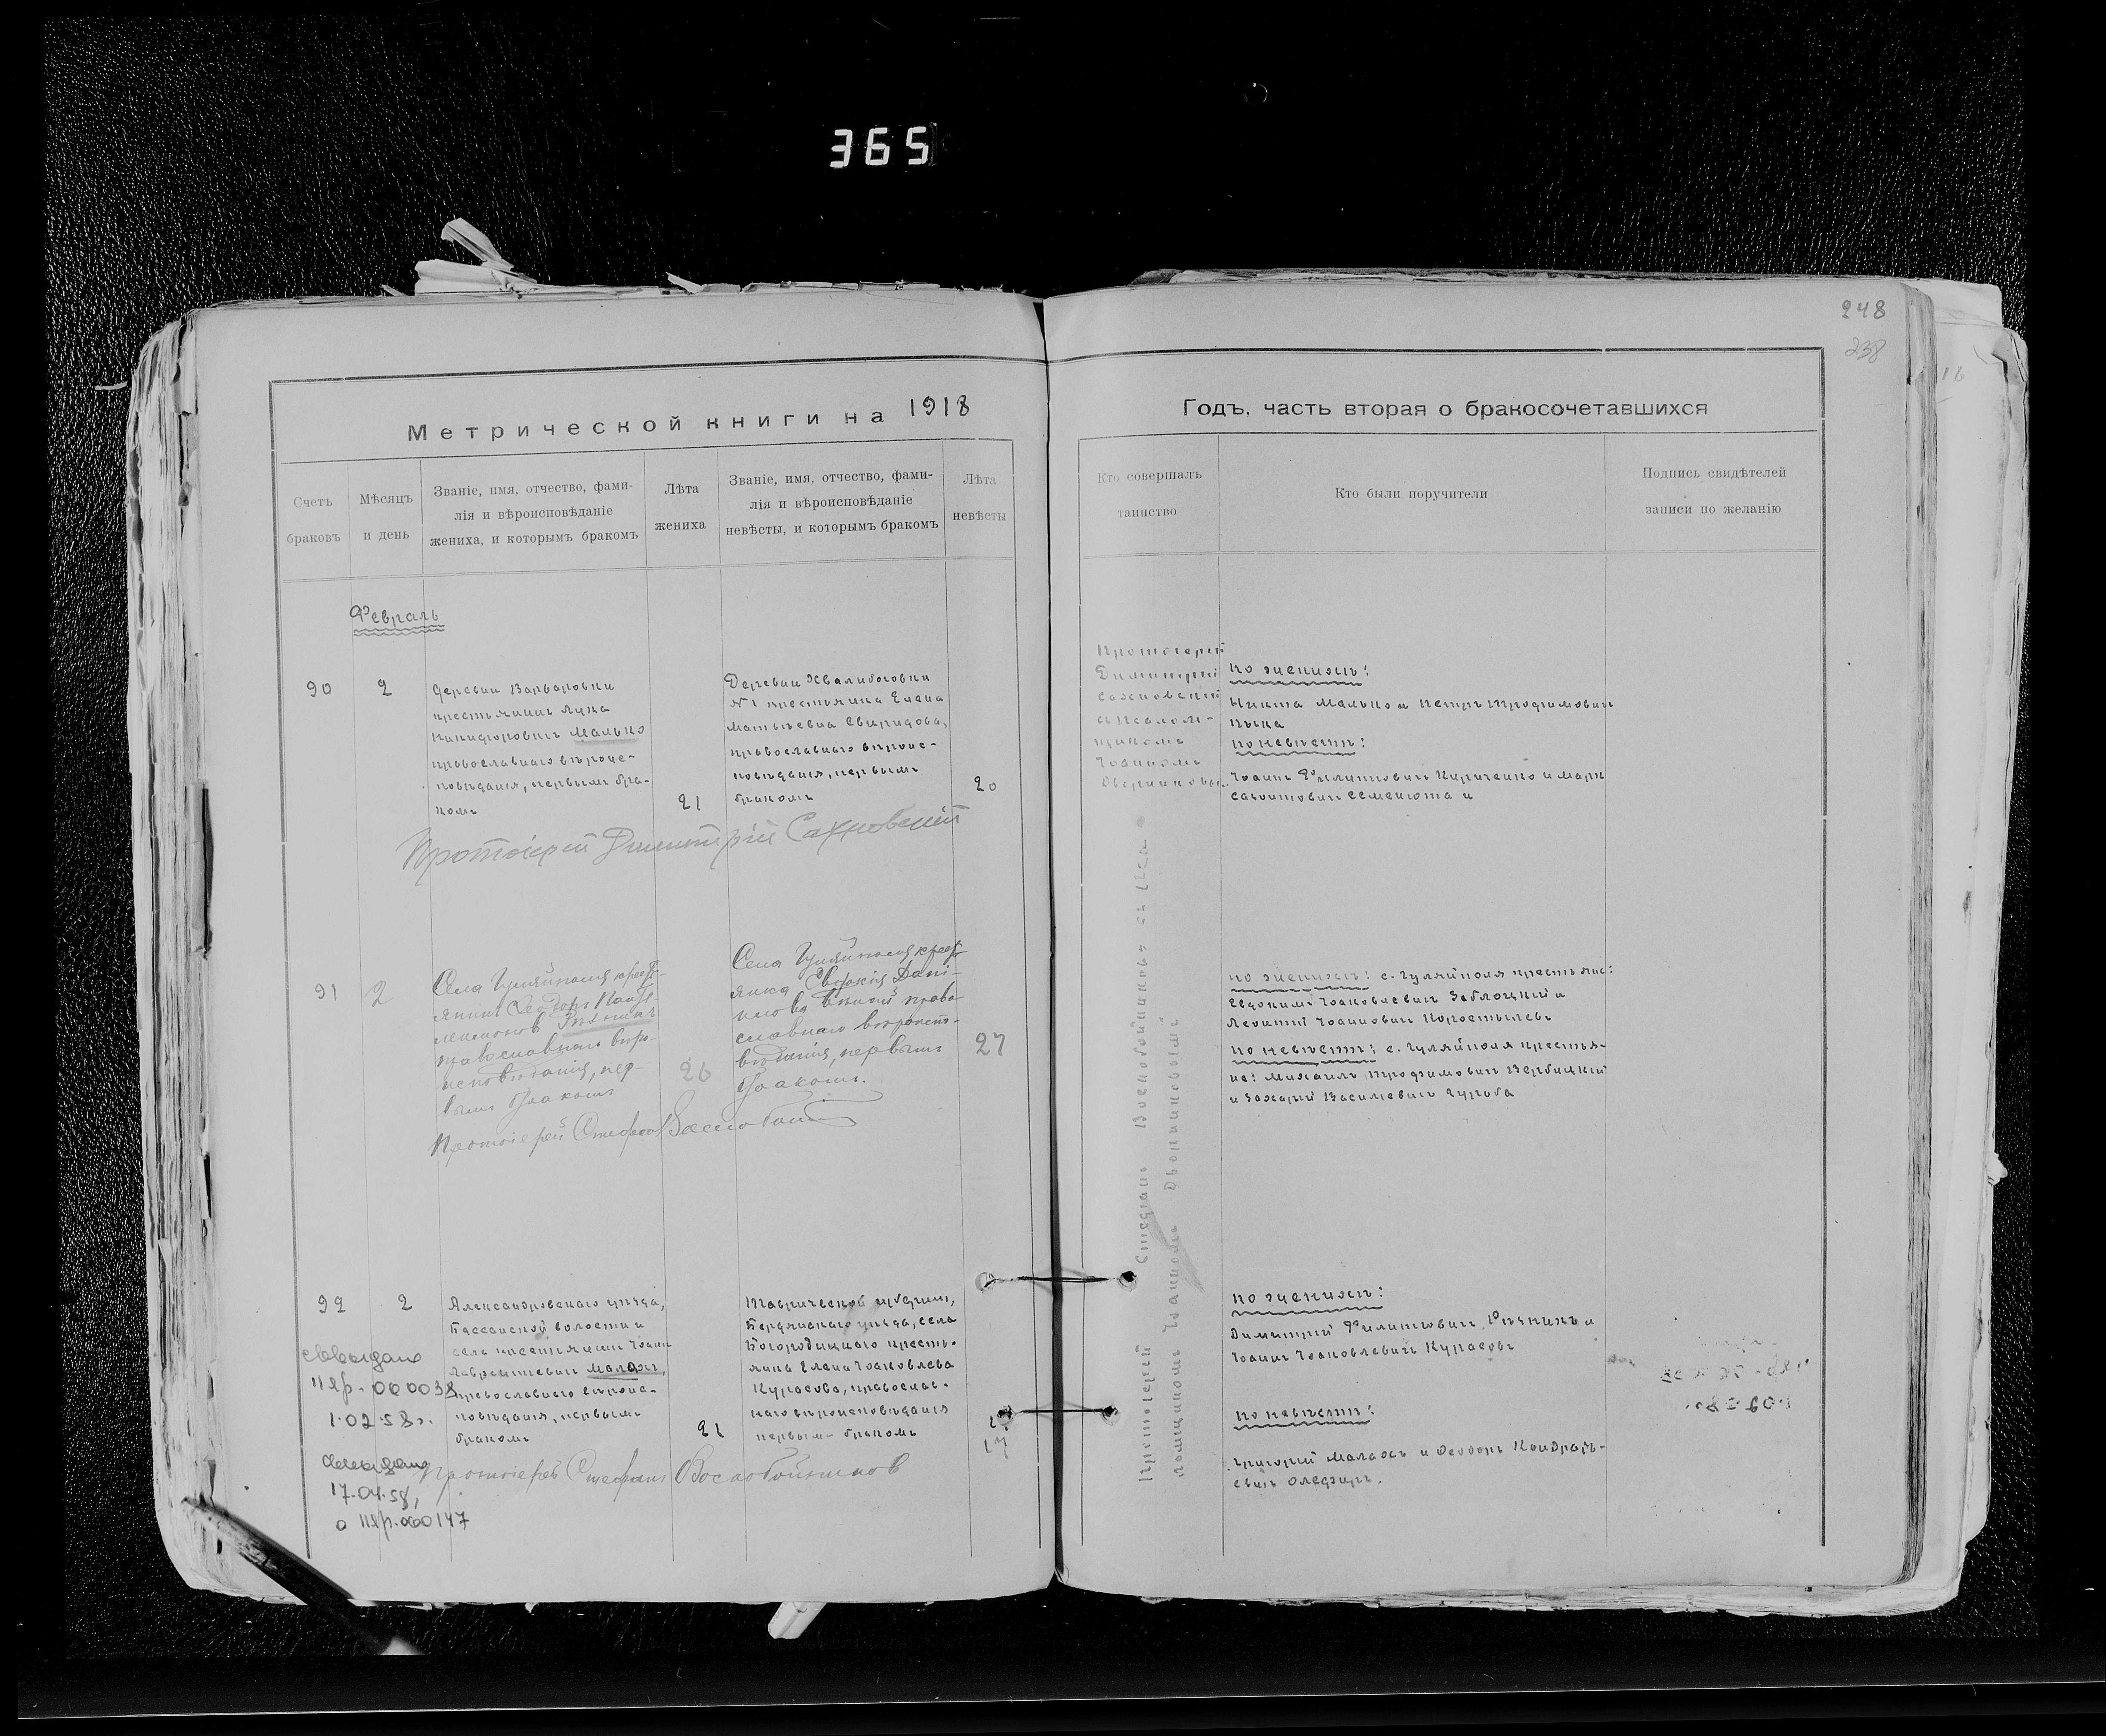 365
248
238
Метрической книги на 1918
Годъ, часть вторая о бракосочетавшихся
Счетъ
браковъ
Мѣсяцъ
и день
Званіе, имя, отчество, фами-
лія и вѣроисповѣданіе
жениха, и которымъ бракомъ
Лѣта
жениха
Званіе, имя, отчество, фами-
лія и вѣроисповѣданіе
невѣсты, и которымъ бракомъ
Лѣта
невѣсты
Кто совершалъ
таинство
Кто были поручители
Подпись свидѣтелей
записи по желанію
Февраль
90
2
Деревни Варваровки
крестьянинъ Лука
Никифоровичъ Малько
православнаго вѣроис-
повѣданія, первымъ бра-
комъ
21
Деревни Хвалибоговки
№ 1 крестьянка Елена
Матвѣевна Свиридова,
православнаго вѣроис-
повѣданія, первымъ
бракомъ
20
Протоіерей
Димитрій
Сахновскій
съ псалом-
щикомъ
Іоанномъ
по женихѣ:
Никита Малько и Петръ Трофимовичъ
по невѣстѣ:
Іоаннъ Филиповичъ Кириченко и Маркъ
Семенюта и
Протоіерей Димитрій Сахновскій
91
2
Села Гуляйполя крест-
янинъ Ѳеодоръ
православнаго вѣро-
исповѣданія, пер-
вымъ бракомъ
26
Села Гуляйполя крест-
янка Евдокія Дані-
лова право-
славнаго вѣроиспо-
вѣданія, первымъ
бракомъ.
27
по женихѣ: с. Гуляйполя крестьяне:
Евдокимъ Іоаковлевичъ Заблоцкій и
Леонтій Іоанновичъ Коростылевъ
по невѣстѣ: с. Гуляйполя крестья-
не: Михаилъ Трофимовичъ Вербицкій
и Захарій Василіевичъ Гурба
Протоіерей Стефанъ
Протоіерей Стефанъ Воскобойниковъ съ пса-
ломщикомъ Іоанномъ Дворниковымъ
92
2
Александровскаго уѣзда,
волости и
села крестянинъ Іоаннъ
Лаврентіевичъ Малахъ,
православнаго вѣроис-
повѣданія, первымъ
бракомъ
21
Таврической губерніи,
Бердянскаго уѣзда, села
Богородицкаго кресть-
янка Елена Іоаковлева
Курасова, православ-
наго вѣроисповѣданія
первым- бракомъ
17
по женихѣ:
Димитрій Филиповичъ и
Іоаннъ Іоаковлевичъ Курасовъ
по невѣстѣ:
Григорій Малахъ и Ѳеодоръ Кондрать-
евичъ Олефиръ.
Протоіерей Стефанъ Воскобойниковъ
1.02.58г.
17.04.58,